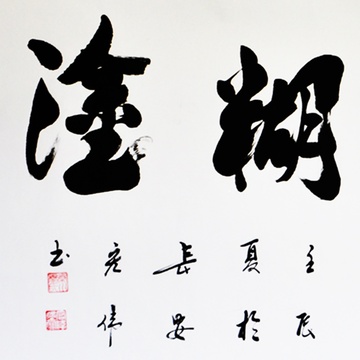 糊塗
壬辰
夏於
長安
彦偉
书